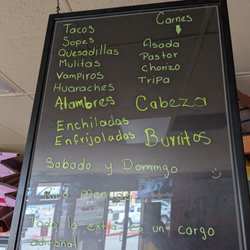 Tacos
Sopes
Quesadillas
Mulitas
Vampiros
Huaraches
Alambres
Enchiladas
Enfrijoladas
Carnes
Asada
Pastor
Chorizo
Tripa
Cabeza
Burritos
Sabado y Domingo
Rico Menudo
Todo lo extra es un cargo
adicional